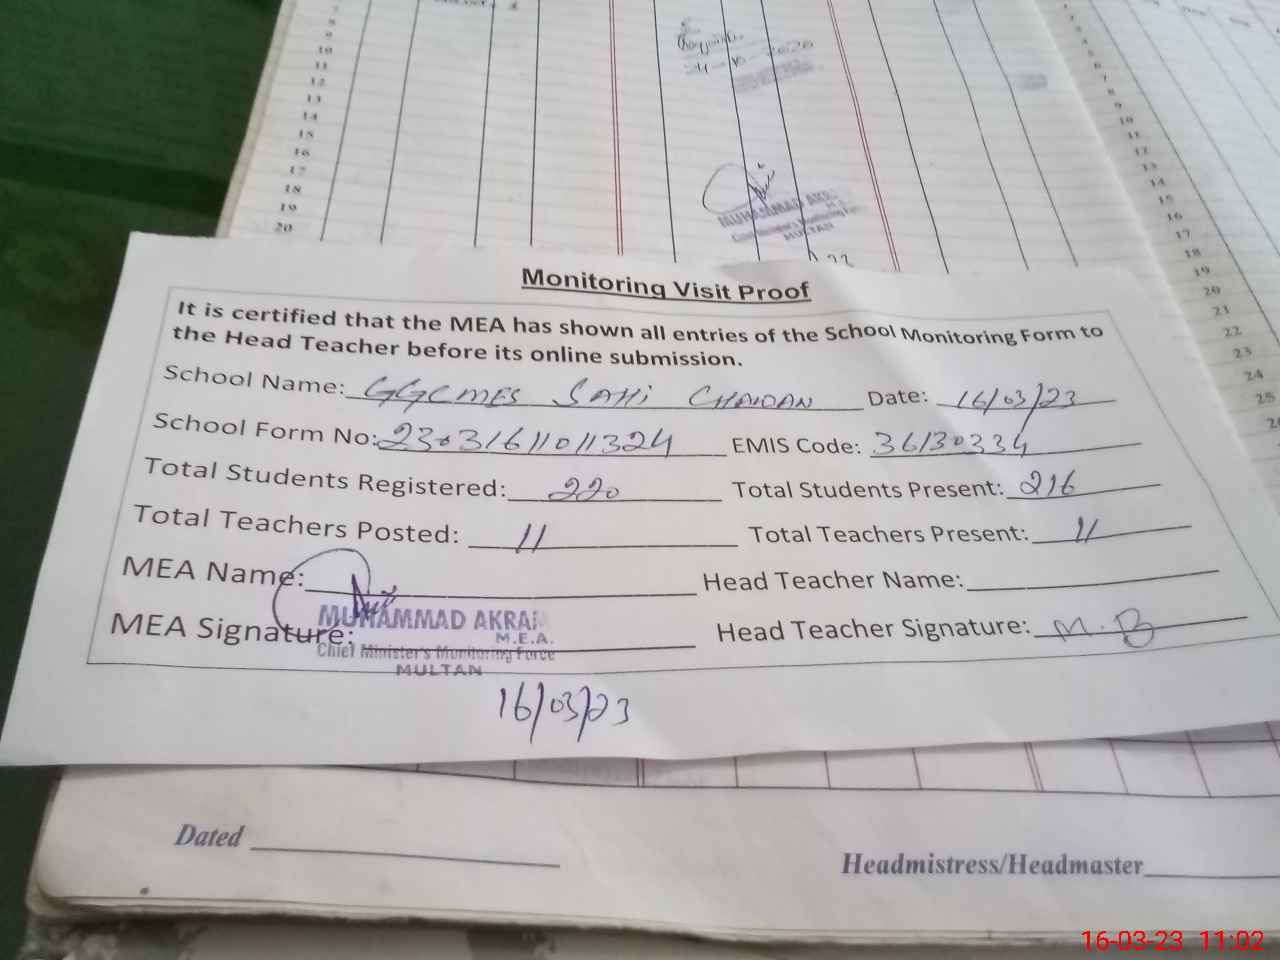 7
8
9
10
11
12
13
14
15
16
17
18
19
20
24-10-2020
MUHAMMAD
MULTAN
7
8
9
10
11
12
13
14
15
16
17
18
19
20
21
22
23
24
25
Monitoring Visit Proof
It is certified that the MEA has shown all entries of the School Monitoring Form to
the Head Teacher before its online submission.
School Name: GGCMES SAHI CHAWAN Date: 16/03/23
School Form No: 23031611011324 EMIS Code: 36130334
Total Students Registered: 220 Total Students Present: 216
Total Teachers Posted: 11 Total Teachers Present: 11
MEA Name: Head Teacher Name:
MUHAMMAD AKRAM
M.E.A.
MEA Signature: Head Teacher Signature: M.B
Chief Minister's Monitoring Force
MULTAN
16/03/23
Dated
Headmistress/Headmaster
16-03-23 11:02